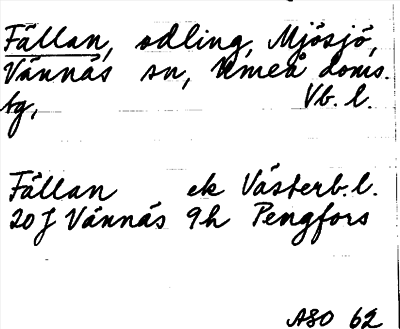 Fällan, odling, Mjösjö,
Vännäs sn, Umeå doms.
tg, Vb. l.
Fällan ek Västerb. l.
20J Vännäs 9h Pengfors
ASO 62